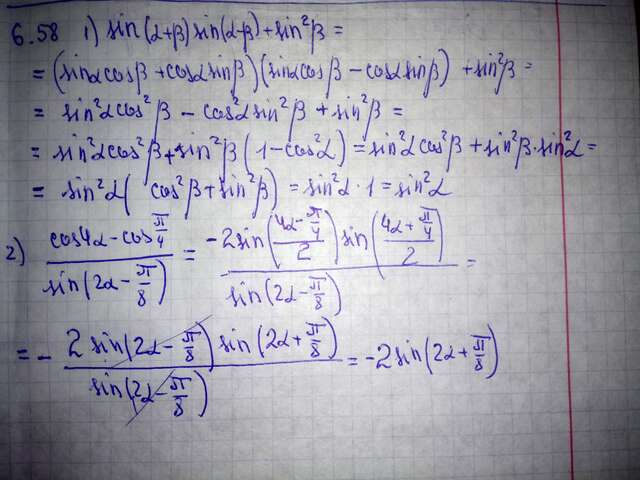 6.58 1) sin(α+β)sin(α-β)+sin²β=
=(sinαcosβ+cosαsinβ)(sinαcosβ-cosαsinβ)+sin²β=
=sin²αcos²β-cos²αsin²β+sin²β=
=sin²αcos²β+sin²β(1-cos²α)=sin²αcos²β+sin²β·sin²α=
=sin²α(cos²β+sin²β)=sin²α·1=sin²α
2) (cos4α-cos π/4)/(sin(2α-π/8)) = (-2sin((4α-π/4)/2)sin((4α+π/4)/2))/(sin(2α-π/8)) =
=-(2sin(2α-π/8)sin(2α+π/8))/(sin(2α-π/8)) =-2sin(2α+π/8)